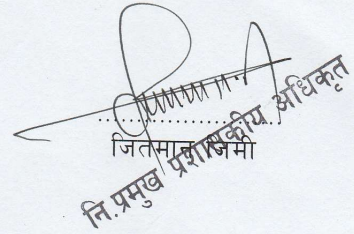 जितमान रजमी
नि.प्रमुख प्रशासकीय अधिकृत